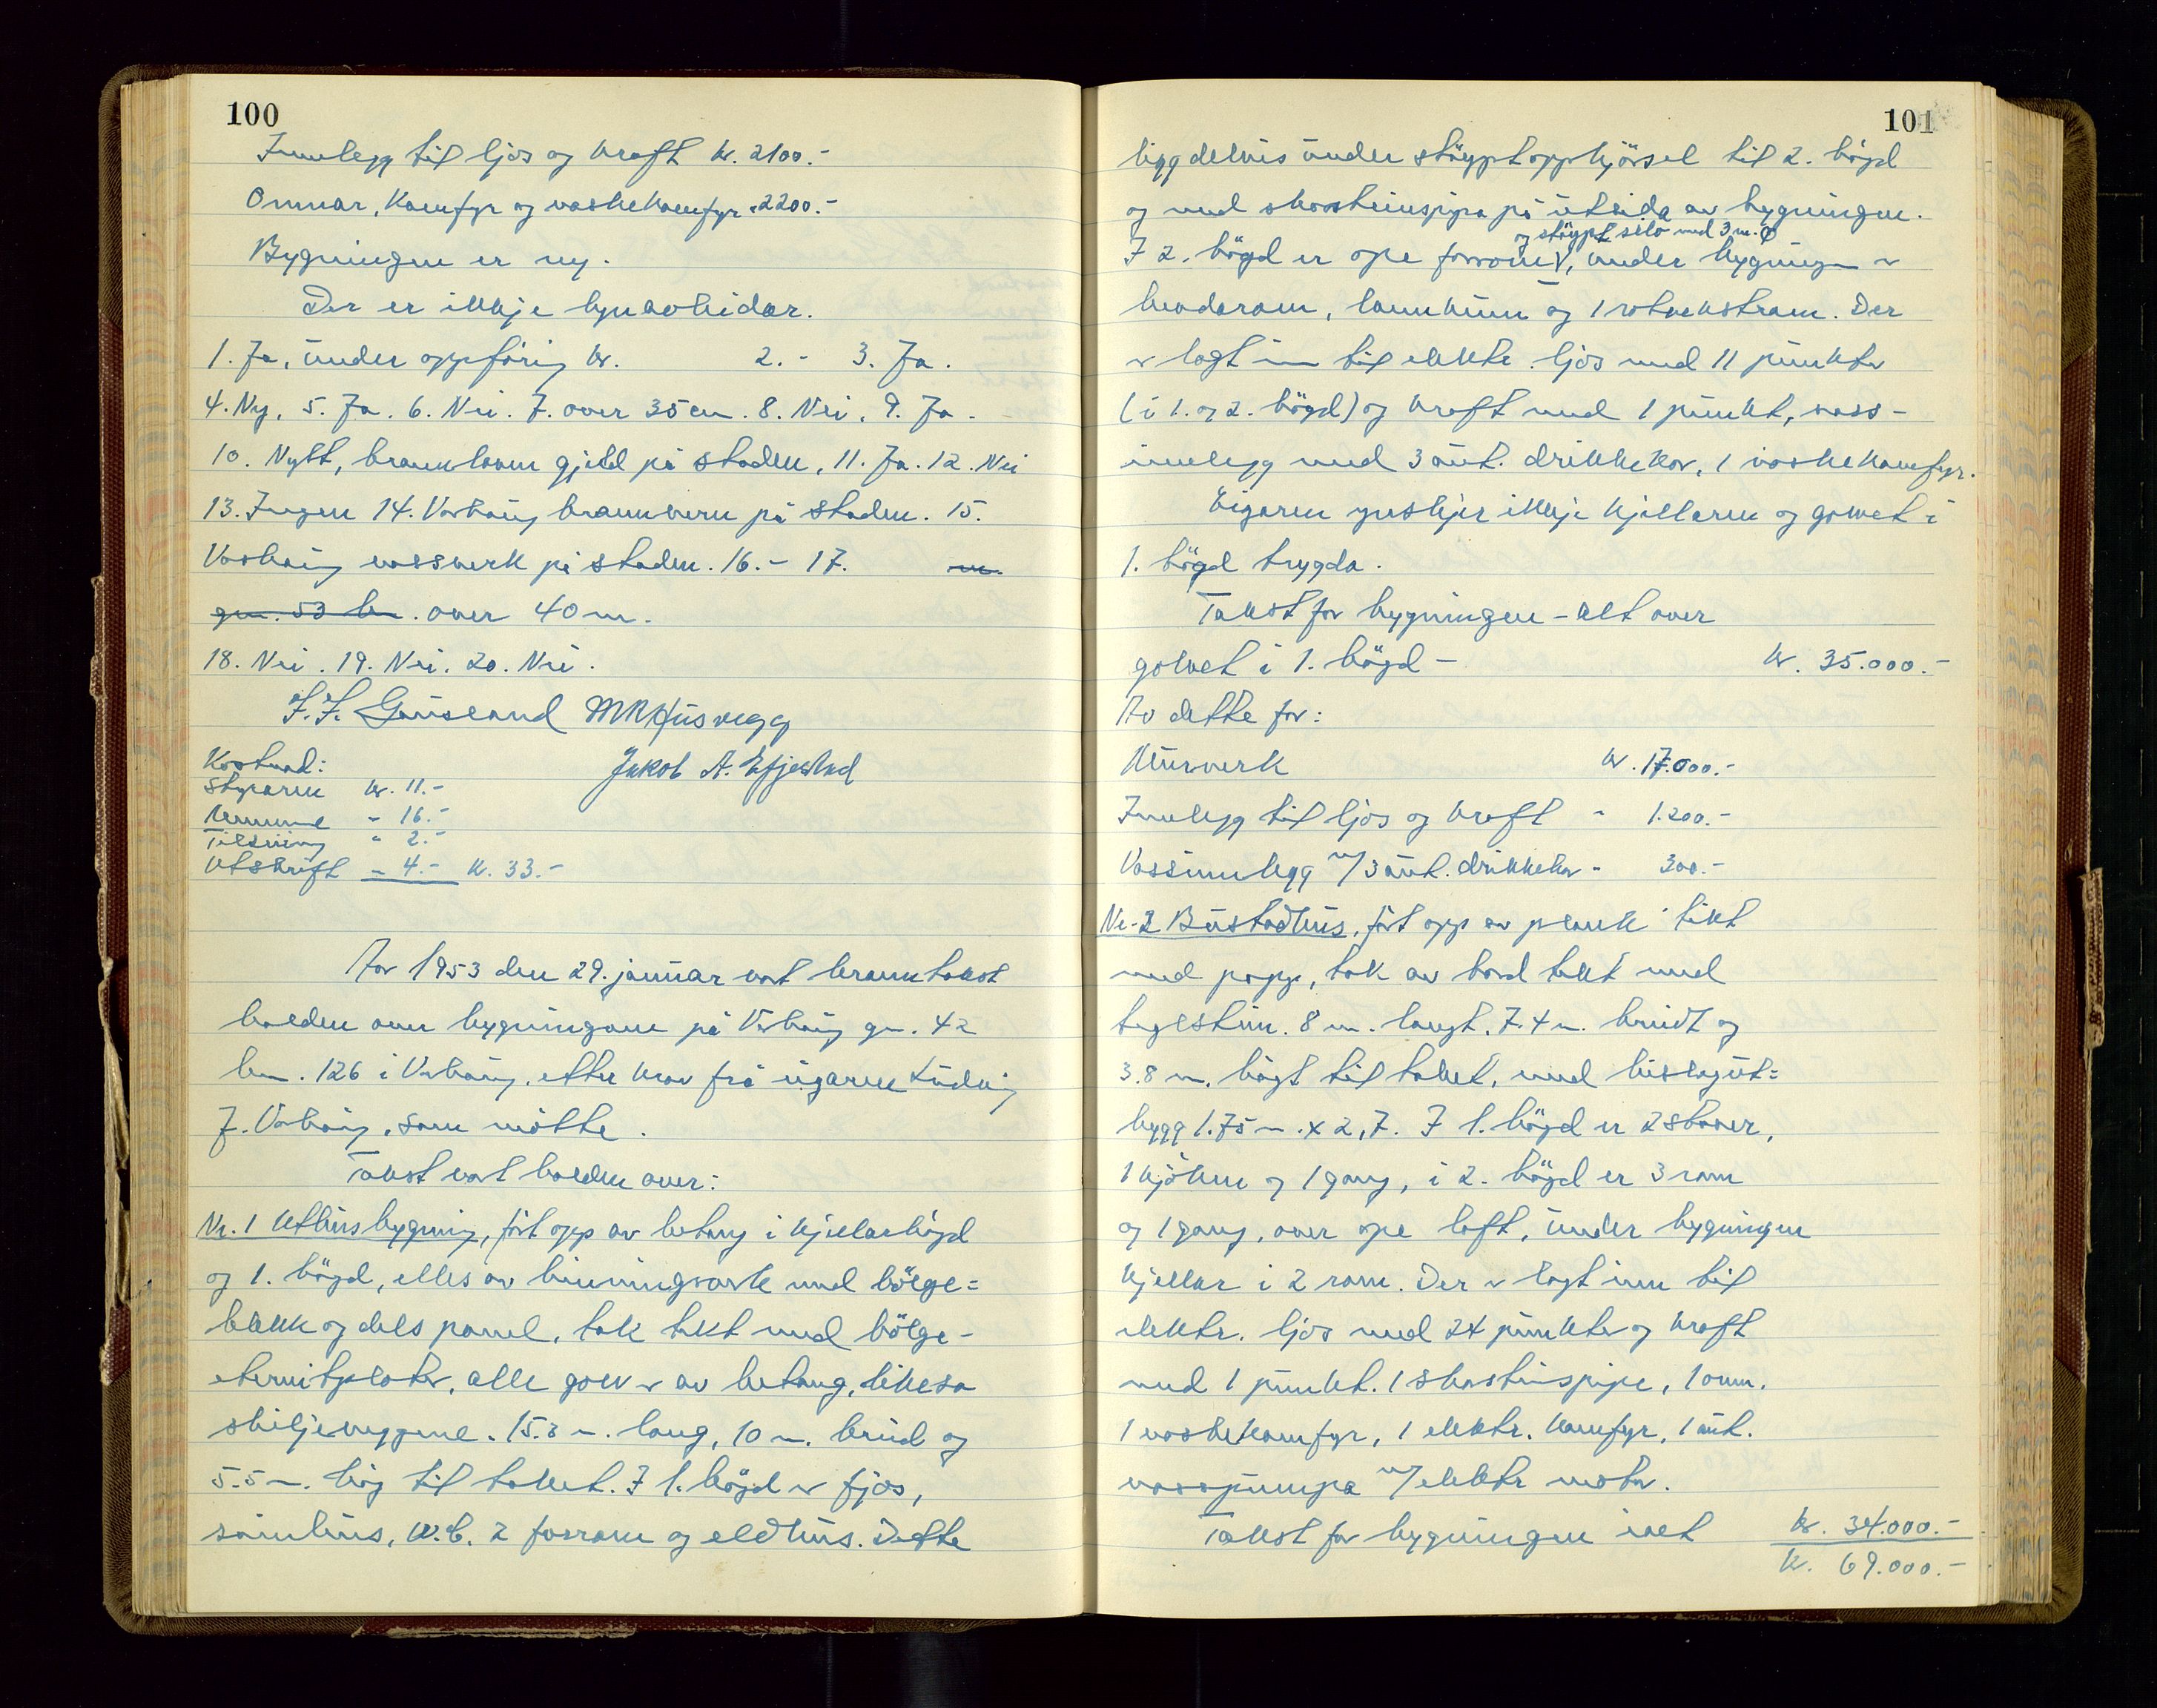 100
Innlegg til ljos og kraft kr. 2100.-
Omnar, Komfyr og vaskekomfyr " 2200.-
Bygningen er ny.
Der er ikkje lynavleidar.
1. Ja, under oppföring kr. 2. - 3. Ja.
4. Ny. 5. Ja. 6. Nei. 7. over 35 cm. 8. Nei. 9. Ja.
10. Nytt, brannlaam gjeld på staden, 11. Ja. 12. Nei
13. Ingen 14. Varhaug brannvern på staden. 15.
Varhaug vassverk på staden. 16. - 17.
gn. 53 bn. over 40 m.
18. Nei. 19. Nei. 20. Nei.
J. J. Gausland M R Husvegg
Kostnad: Jakob A. Efjestad
Styraren kr. 11.-
Nemnd " 16.-
Tilsving " 2.-
Utskrift " 4.- kr. 33.-
Aar 1953 den 29. januar vart branntakst
halden over bygningane på Varhaug gn. 42
bn. 126 i Varhaug, etter krav frå eigaren Ludvig
J. Varhaug, som mötte.
Takst vart halden over:
Nr. 1 Uthusbygning, fört opp av betong i kjellarhögd
og 1. högd, elles av bindingsverk med bölge=
blekk og dels panel, tak tekt med bölge-
eternitplater, alle golv er av betong, likeso
skiljeveggene. 15.3 m. lang, 10 m. breid og
5.5 m. hög til taket. I 1. högd er fjos,
saùehus, W.C. 2 forrom og eldhus. Dette
101
ligg delvis under stöypt oppkjörsel til 2. högd
og med skorsteinspipa på utsida av bygningen.
og stöypt silo med 3 m. φ
I 2. högd er ope forrom, under bygningen er
lannkum og 1 rotvekstrom. Der
er lagt inn til elektr. ljos med 11 punkter
(i 1. og 2. högd) og kraft med 1 punkt, vass-
innlegg med 3 aut. drikkekar, 1 vaskekomfyr.
Eigaren ynskjer ikkje kjellaren og golvet i
1. högd trygda.
Takst for bygningen - alt over
golvet i 1. högd - kr. 35.000.-
Av dette for:
Murverk kr. 17.000.-
Innlegg til ljos og kraft " 1.200.-
Vassinnlegg m/3 aut. drikkekar " 300.-
Nr. 2 Bustadhus, fört opp av plank tekt
med papp, tak av bord tekt med
teglstein. 8 m. langt. 7.4 m. breidt og
3.8 m. högt til taket, med bislagut=
bygg 1.75 m. x 2,7. I 1. högd er 2 stover,
1 kjöken og 1 gang, i 2. högd er 3 rom
og 1 gang, over ope loft, under bygningen
kjellar i 2 rom. Der er lagt inn til
elektr. ljos med 24 punkter og kraft
med 1 punkt. 1 skorsteinspipe, 1 omn.
1 vaskekomfyr, 1 elektr. komfyr, 1 aut.
vasspumpa m/elektr motor.
Takst for bygningen ialt kr. 34.000.-
kr. 69.000.-